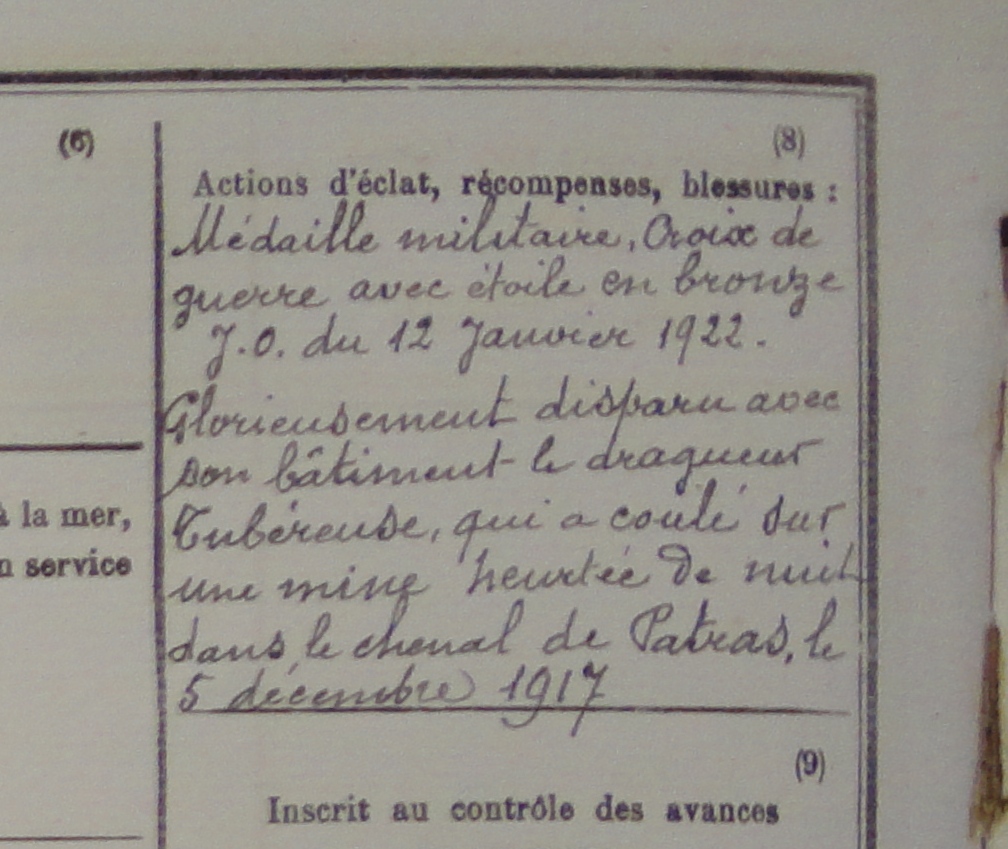 (6)
(8)
Actions d'éclat, récompenses, blessures :
Médaille militaire, Croix de
guerre avec étoile en bronze
J.O. du 12 Janvier 1922.
Glorieusement disparu avec
son bâtiment le dragueur
Tubéreuse, qui a coulé sur
une mine heurtée de nuit
dans le chenal de Patras, le
5 décembre 1917
à la mer,
n service
(9)
Inscrit au contrôle des avances